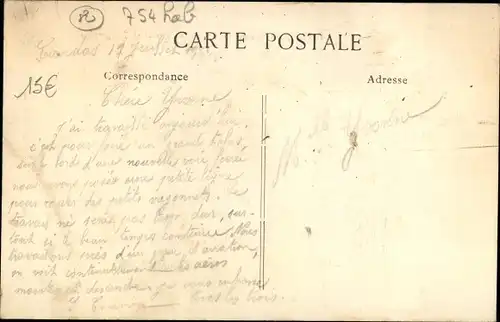 754 hab
CARTE POSTALE
Landas 19 juillet
Correspondance
Adresse
15€
Chère Yvonne
J'ai travaillé aujourd'hui
c'est pour faire un grand talus
sur le bord d'une nouvelle voie ferrée
nous avons une petite ligne
pour rouler des petits wagonnets. Le
travail ne serait pas trop dur, sur-
tout si le beau temps continue. Nous
travaillons près d'un parc d'aviation,
on voit continuellement les aéros
monter et descendre. Je vous embrasse
tous les trois.
Mlle Yvonne